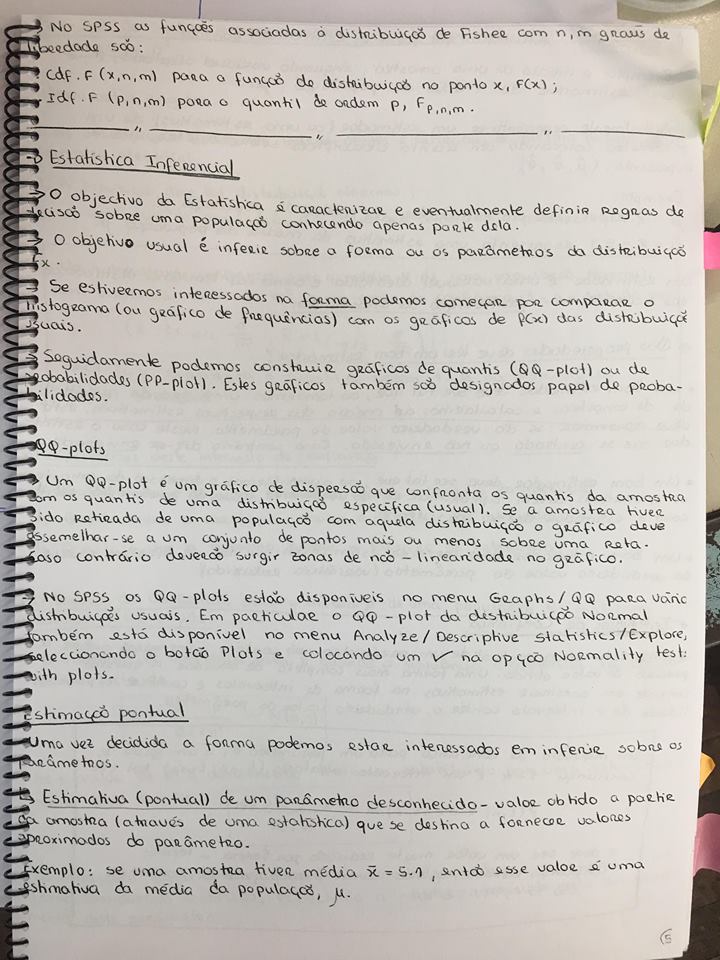 → No SPSS as funções associadas à distribuição de Fisher com n, m graus de
liberdade são:
· Cdf.F (x,n,m) para a função de distribuição no ponto x, F(x);
· Idf.F (p,n,m) para o quantil de ordem p, Fp,n,m.
→ Estatística Inferencial
→ O objectivo da Estatística é caracterizar e eventualmente definir regras de
decisão sobre uma população conhecendo apenas parte dela.
→ O objetivo usual é inferir sobre a forma ou os parâmetros da distribuição
Fx.
→ Se estivermos interessados na forma podemos começar por comparar o
histograma (ou gráfico de frequências) com os gráficos de f(x) das distribuiçõ
usuais.
→ Seguidamente podemos construir gráficos de quantis (QQ-plot) ou de
probabilidades (PP-plot). Estes gráficos também são designados papel de proba-
bilidades.
QQ-plots
→ Um QQ-plot é um gráfico de dispersão que confronta os quantis da amostra
com os quantis de uma distribuição específica (usual). Se a amostra tiver
sido retirada de uma população com aquela distribuição o gráfico deve
assemelhar-se a um conjunto de pontos mais ou menos sobre uma reta.
Caso contrário deverão surgir zonas de não-linearidade no gráfico.
→ No SPSS os QQ-plots estão disponíveis no menu Graphs/QQ para vária
distribuições usuais. Em particular o QQ-plot da distribuição Normal
também está disponível no menu Analyze/Descriptive Statistics/Explore,
seleccionando o botão Plots e colocando um ✓ na opção Normality test
with plots.
Estimação pontual
Uma vez decidida a forma podemos estar interessados em inferir sobre os
parâmetros.
↳ Estimativa (pontual) de um parâmetro desconhecido - valor obtido a partir
da amostra (através de uma estatística) que se destina a fornecer valores
aproximados do parâmetro.
Exemplo: se uma amostra tiver média x̄ = 5.1, então esse valor é uma
estimativa da média da população, μ.
5